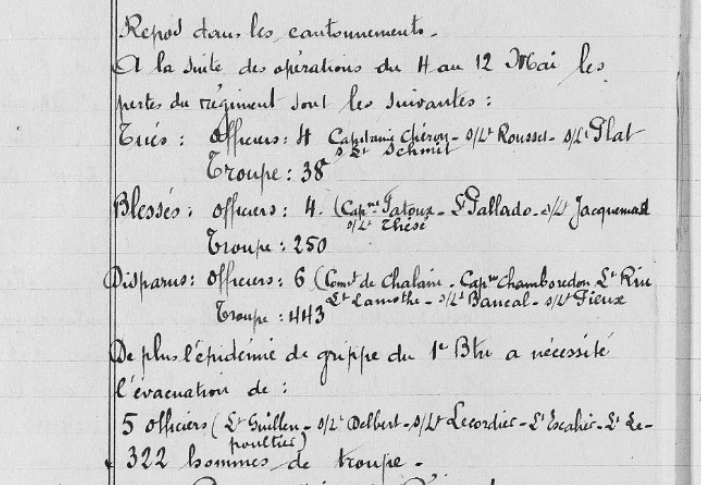 Repos dans les cantonnements.
A la suite des opérations du 4 au 12 Mai les
pertes du régiment sont les suivantes :
Tués : officiers : 4 Capitaine Chéron - s/Lt Rousset - s/Lt Plat
s/Lt Schmit
Troupe : 38
Blessés : officiers : 4. (Capne Patoux - Lt Pallado - s/Lt Jacquemard
s/Lt Thésé
Troupe : 250
Disparus : officiers : 6 (Comt de Chalain - Capne Chamboredon, Lt Riu
Lt Lamothe - s/Lt Bancal - s/Lt Fieux
Troupe : 443
De plus l'épidémie de grippe du 1e Btn a nécessité
l'évacuation de :
5 officiers (Lt Guillen - s/Lt Delbert - s/Lt Lecordier - Lt Escalier - Lt Le-
poultier)
322 hommes de troupe.